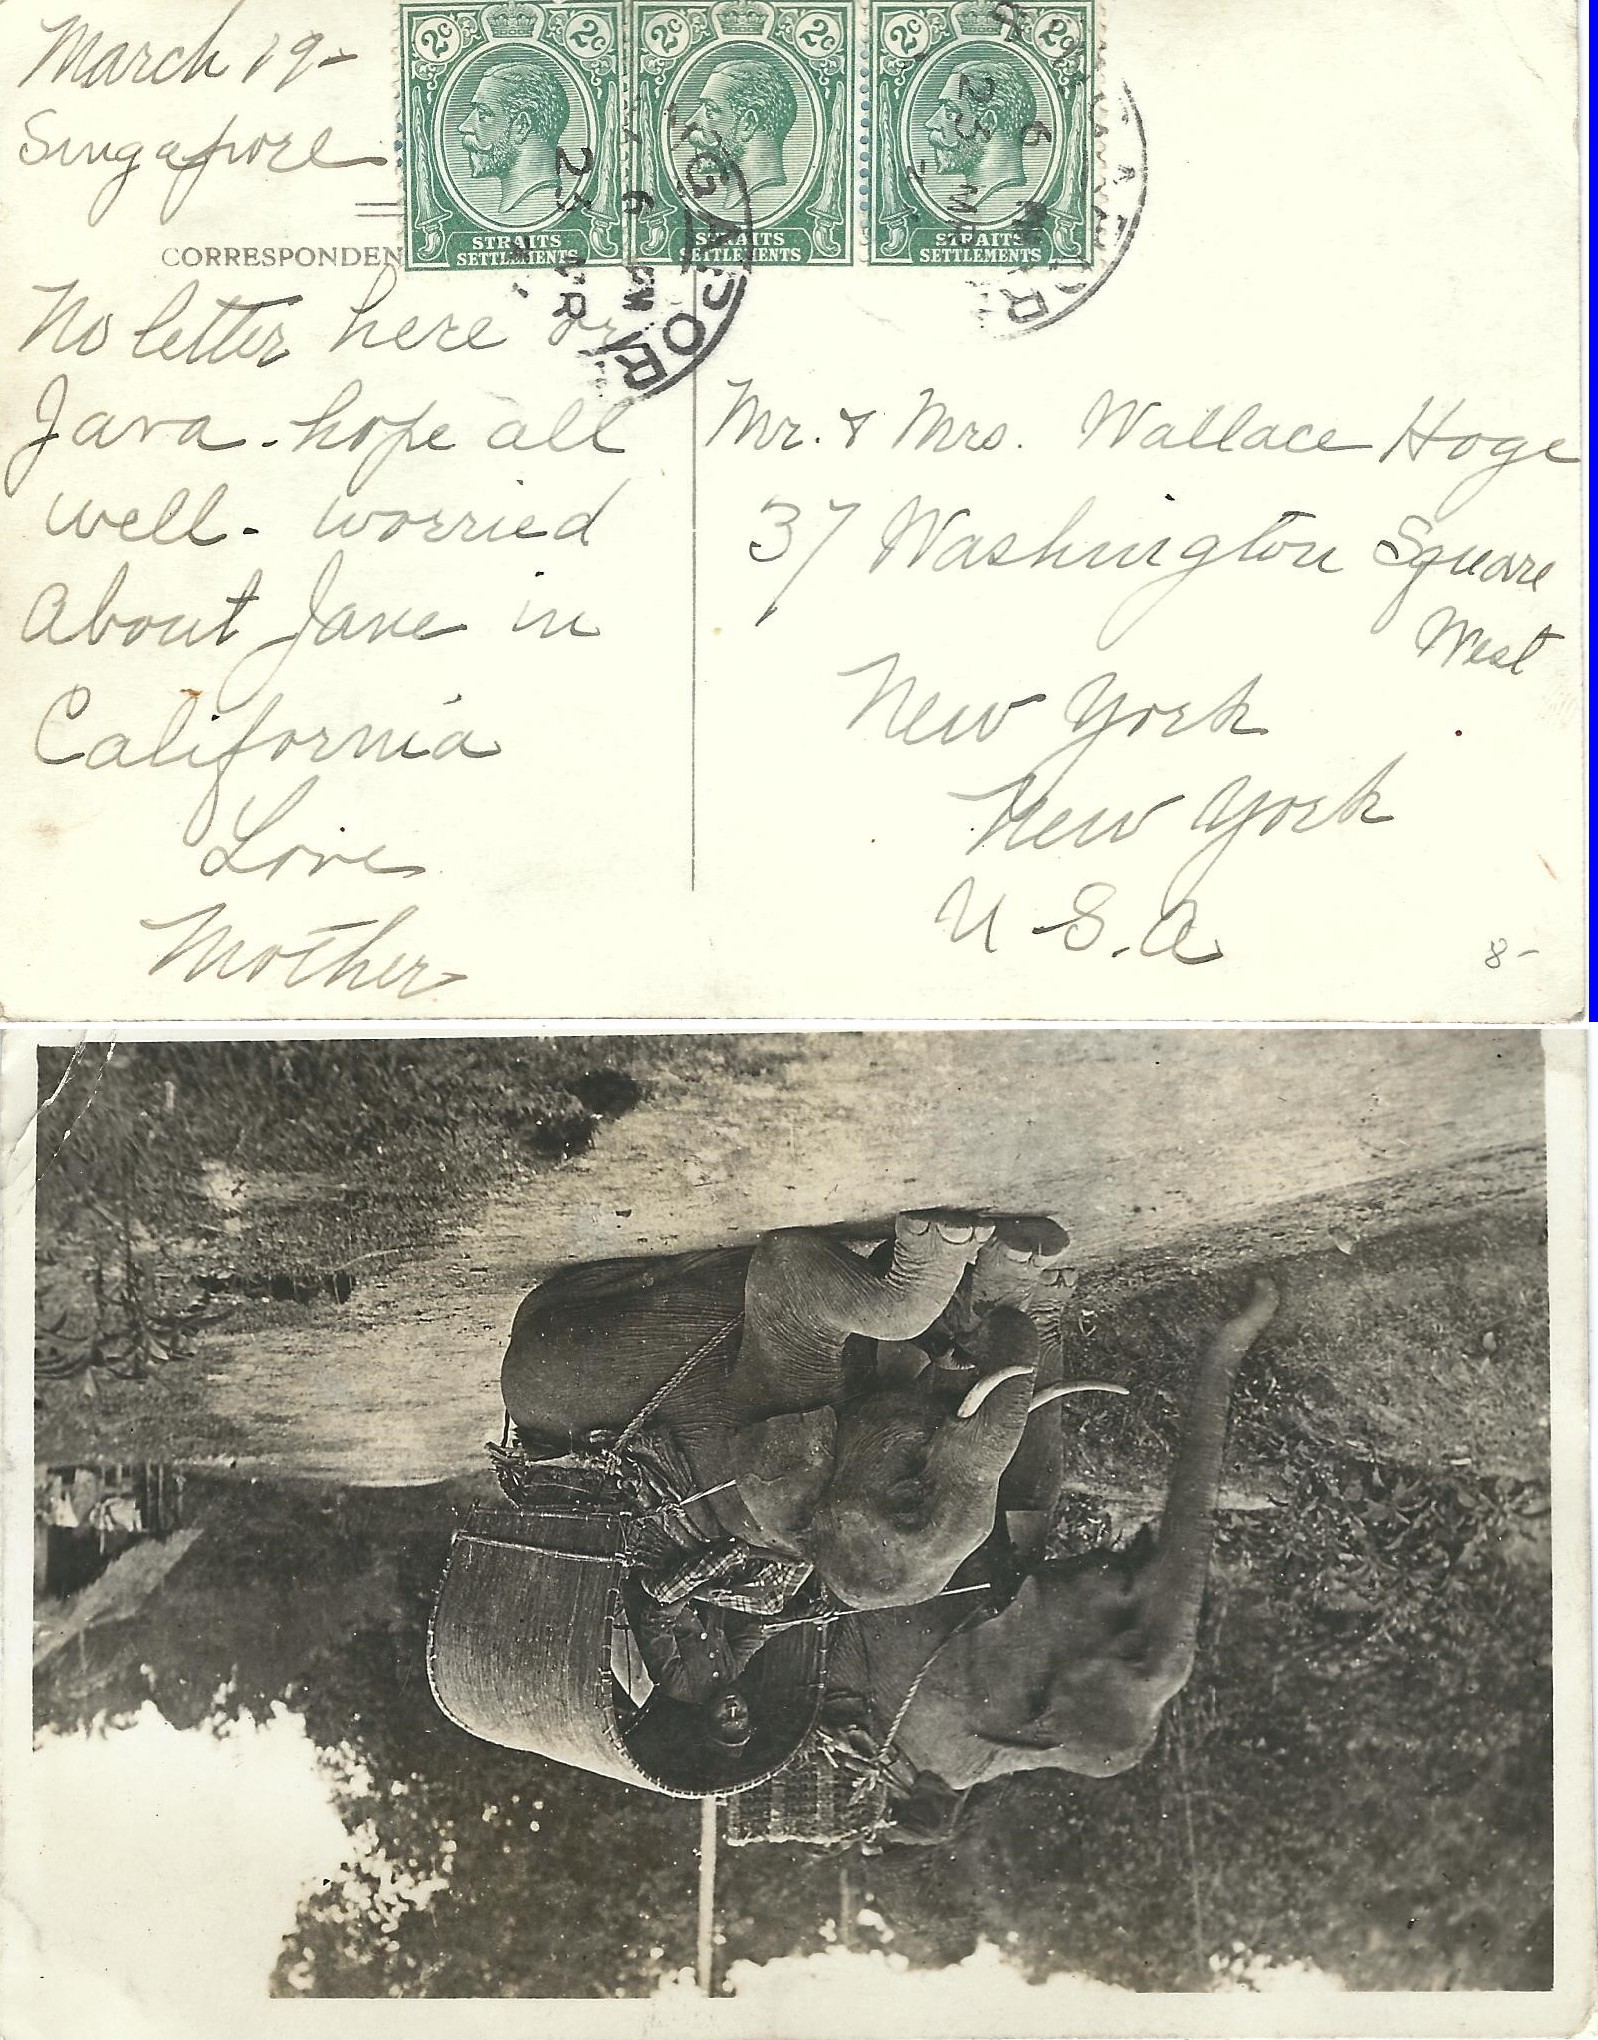 March 19-
Singapore
2c 2c
STRAITS
SETTLEMENTS
2c 2c
STRAITS
SETTLEMENTS
2c 2c
STRAITS
SETTLEMENTS
6 PM
25
MR
6 PM
23 MR
CORRESPONDEN
No letter here or
Java - hope all
well - worried
About Jane in
California
Love
Mother
Mr. & Mrs. Wallace Hoge
37 Washington Square
West
New York
New York
U.S.A
8-